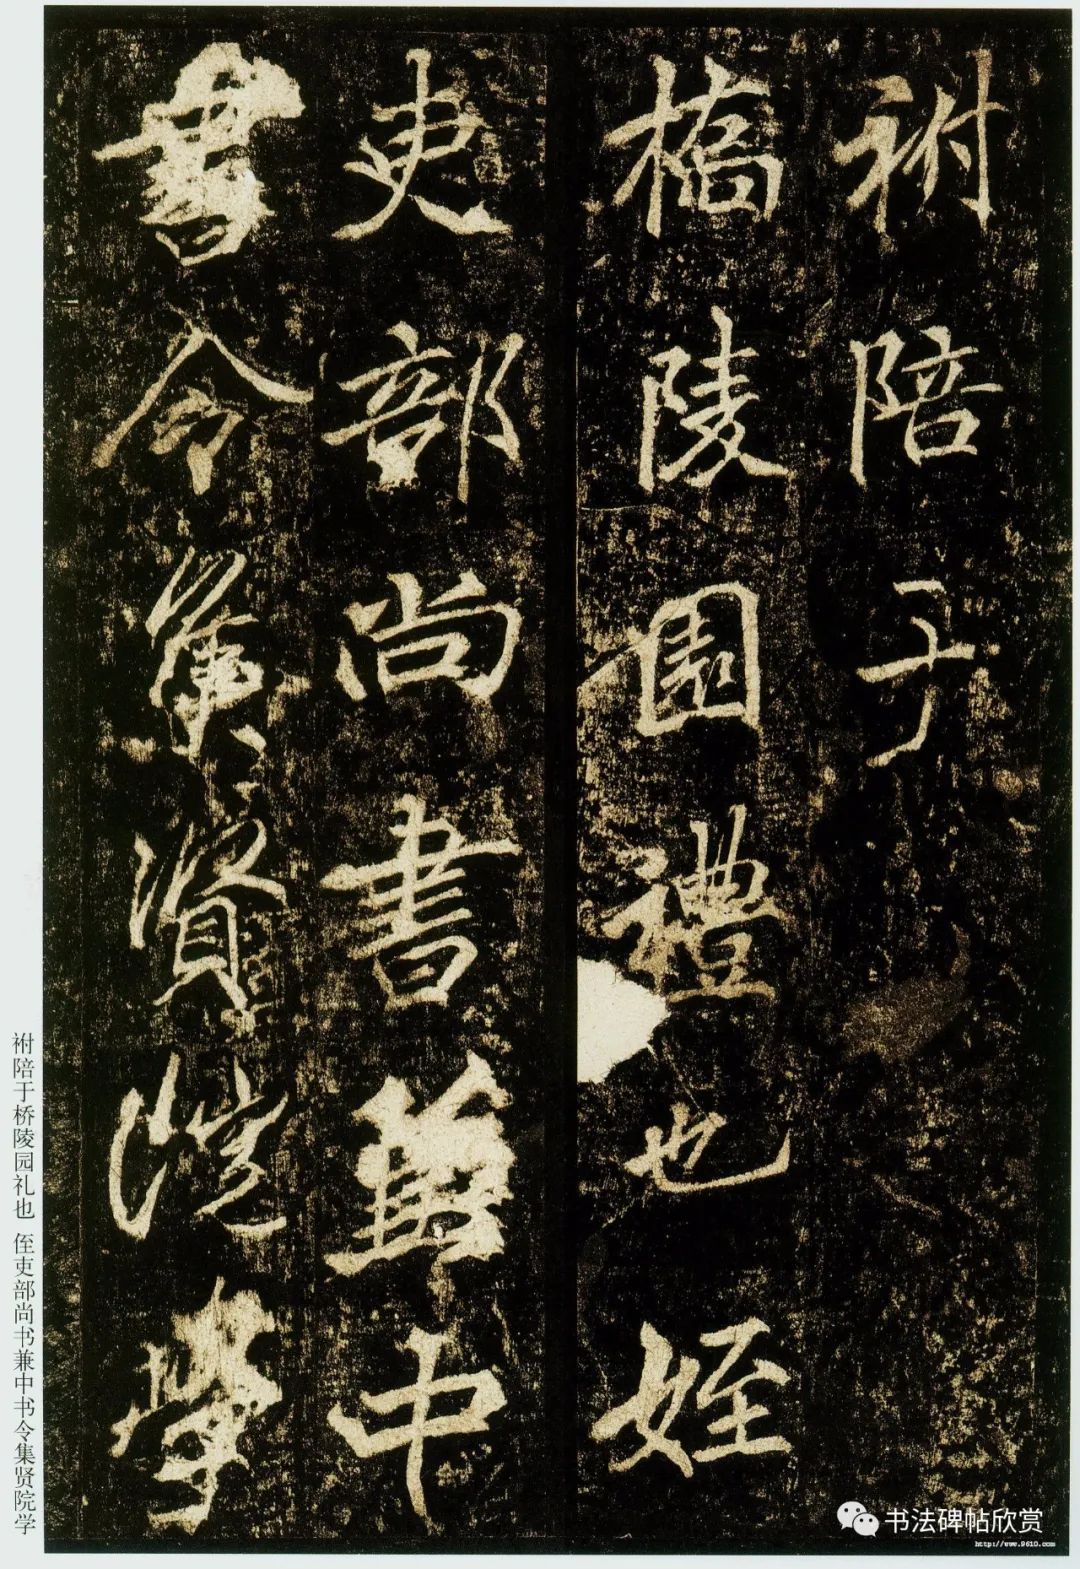 祔陪于
橋陵園禮也姪
吏部尚書兼中
書令集賢院學
祔陪于桥陵园礼也 侄吏部尚书兼中书令集贤院学
书法碑帖欣赏
http://www.9610.com